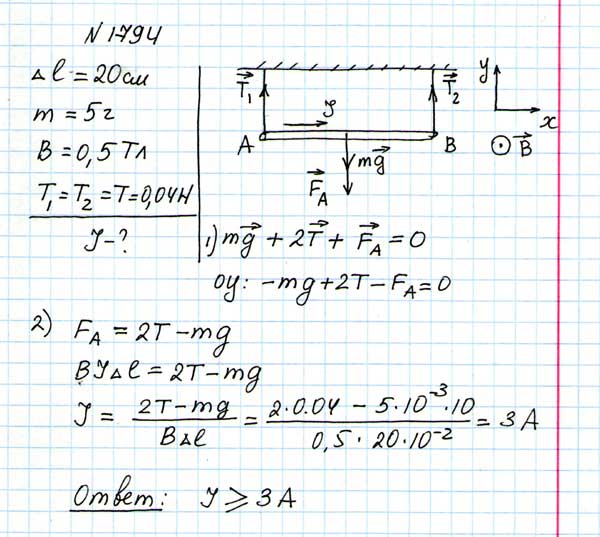 N 1794
Δl = 20см
m = 5г
B = 0,5 Тл
T₁ = T₂ = T = 0,04Н
I - ?
T₁ T₂
I
A B
mg
F_A
y
x
B
1) mg + 2T + F_A = 0
oy: -mg + 2T - F_A = 0
2) F_A = 2T - mg
BIΔl = 2T - mg
I = (2T - mg)/(BΔl) = (2·0.04 - 5·10⁻³·10)/(0,5·20·10⁻²) = 3 A
Ответ: I ⩾ 3 A